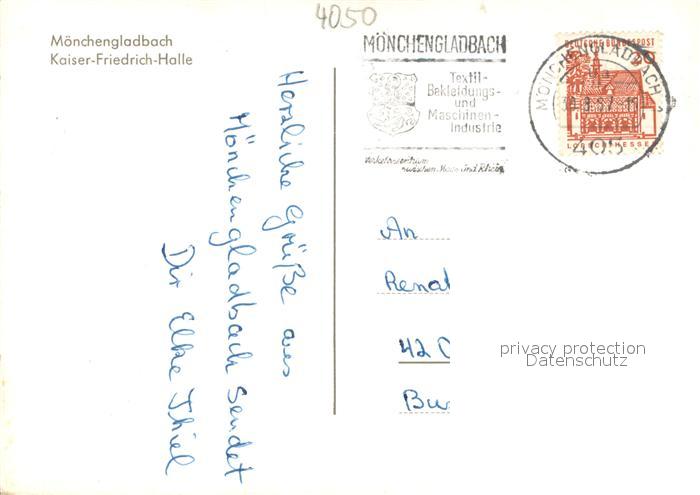 4050
Mönchengladbach
Kaiser-Friedrich-Halle
MÖNCHENGLADBACH
Textil-
Bekleidungs-
und
Maschinen-
industrie
Verkehrszentrum
zwischen Maas und Rhein
DEUTSCHE BUNDESPOST
LORSCH/HESSEN
MÖNCHENGLADBACH
405
Herzliche Grüße aus
Mönchengladbach sendet
Dir Elke Thiel
An
Renat
42
Bu
privacy protection
Datenschutz